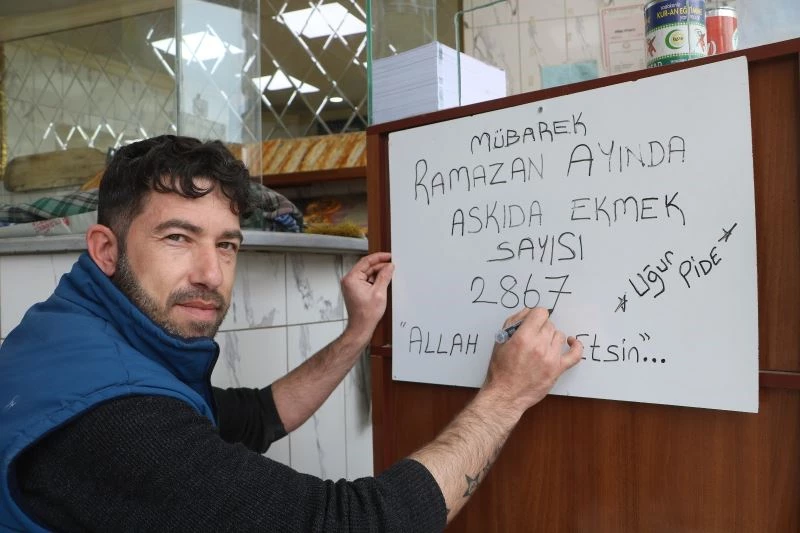 MÜBAREK
RAMAZAN AYINDA
ASKIDA EKMEK
SAYISI
2867
"ALLAH Etsin"...
Uğur
PİDE
KUR-AN EĞ